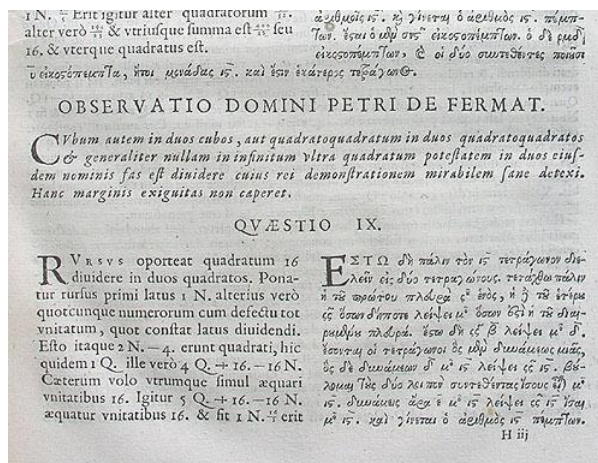 1 N. Erit igitur alter quadratorum
alter verò & vtriusque summa est seu
16. & vterque quadratus est.
ἀριθμοῖς ις̄. καὶ γίνεται ὁ ἀριθμὸς ις̄. πέμπ-
των. ἔσται ὁ μὲν σνς̄ εἰκοσοπέμπτων. ὁ δὲ ρμδ̄
εἰκοσοπέμπτων, καὶ οἱ δύο συντεθέντες ποιοῦσι
ῡ εἰκοσόπεμπτα, ἤτοι μονάδας ις̄. καὶ ἔστιν ἑκάτερος τετράγωνος.
OBSERVATIO DOMINI PETRI DE FERMAT.
CVbum autem in duos cubos, aut quadratoquadratum in duos quadratoquadratos
& generaliter nullam in infinitum vltra quadratum potestatem in duos eius-
dem nominis fas est diuidere cuius rei demonstrationem mirabilem sane detexi.
Hanc marginis exiguitas non caperet.
QVÆSTIO IX.
RVRSVS oporteat quadratum 16
diuidere in duos quadratos. Pona-
tur rursus primi latus 1 N. alterius verò
quotcunque numerorum cum defectu tot
vnitatum, quot constat latus diuidendi.
Esto itaque 2 N. – 4. erunt quadrati, hic
quidem 1 Q. ille verò 4 Q. + 16. – 16 N.
Cæterum volo vtrumque simul æquari
vnitatibus 16. Igitur 5 Q. + 16. – 16 N
æquatur vnitatibus 16. & fit 1 N. erit
ΕΣΤΩ δὴ πάλιν τὸν ις̄ τετράγωνον διε-
λεῖν εἰς δύο τετραγώνους. τετάχθω πάλιν
ἡ τοῦ πρώτου πλευρὰ ς̄ ἑνὸς, ἡ δὲ τοῦ ἑτέρου
ςς̄ ὅσων δήποτε λείψει μ̄ ὅσων ἐστὶ ἡ τοῦ διαι-
ρουμένου πλευρά. ἔστω δὴ ςς̄ β̄ λείψει μ̄ δ̄.
ἔσονται οἱ τετράγωνοι ὃς μὲν δυνάμεως μιᾶς,
ὃς δὲ δυνάμεων δ̄ μ̄ ις̄ λείψει ςς̄ ις̄. βού-
λομαι τοὺς δύο λοιπὸν συντεθέντας ἴσους εἶναι
μ̄ ις̄. δυνάμεις ἄρα ε̄ μ̄ ις̄ λείψει ςς̄ ις̄ ἴσαι
μ̄ ις̄. καὶ γίνεται ὁ ἀριθμὸς ις̄ πέμπτων.
H iij